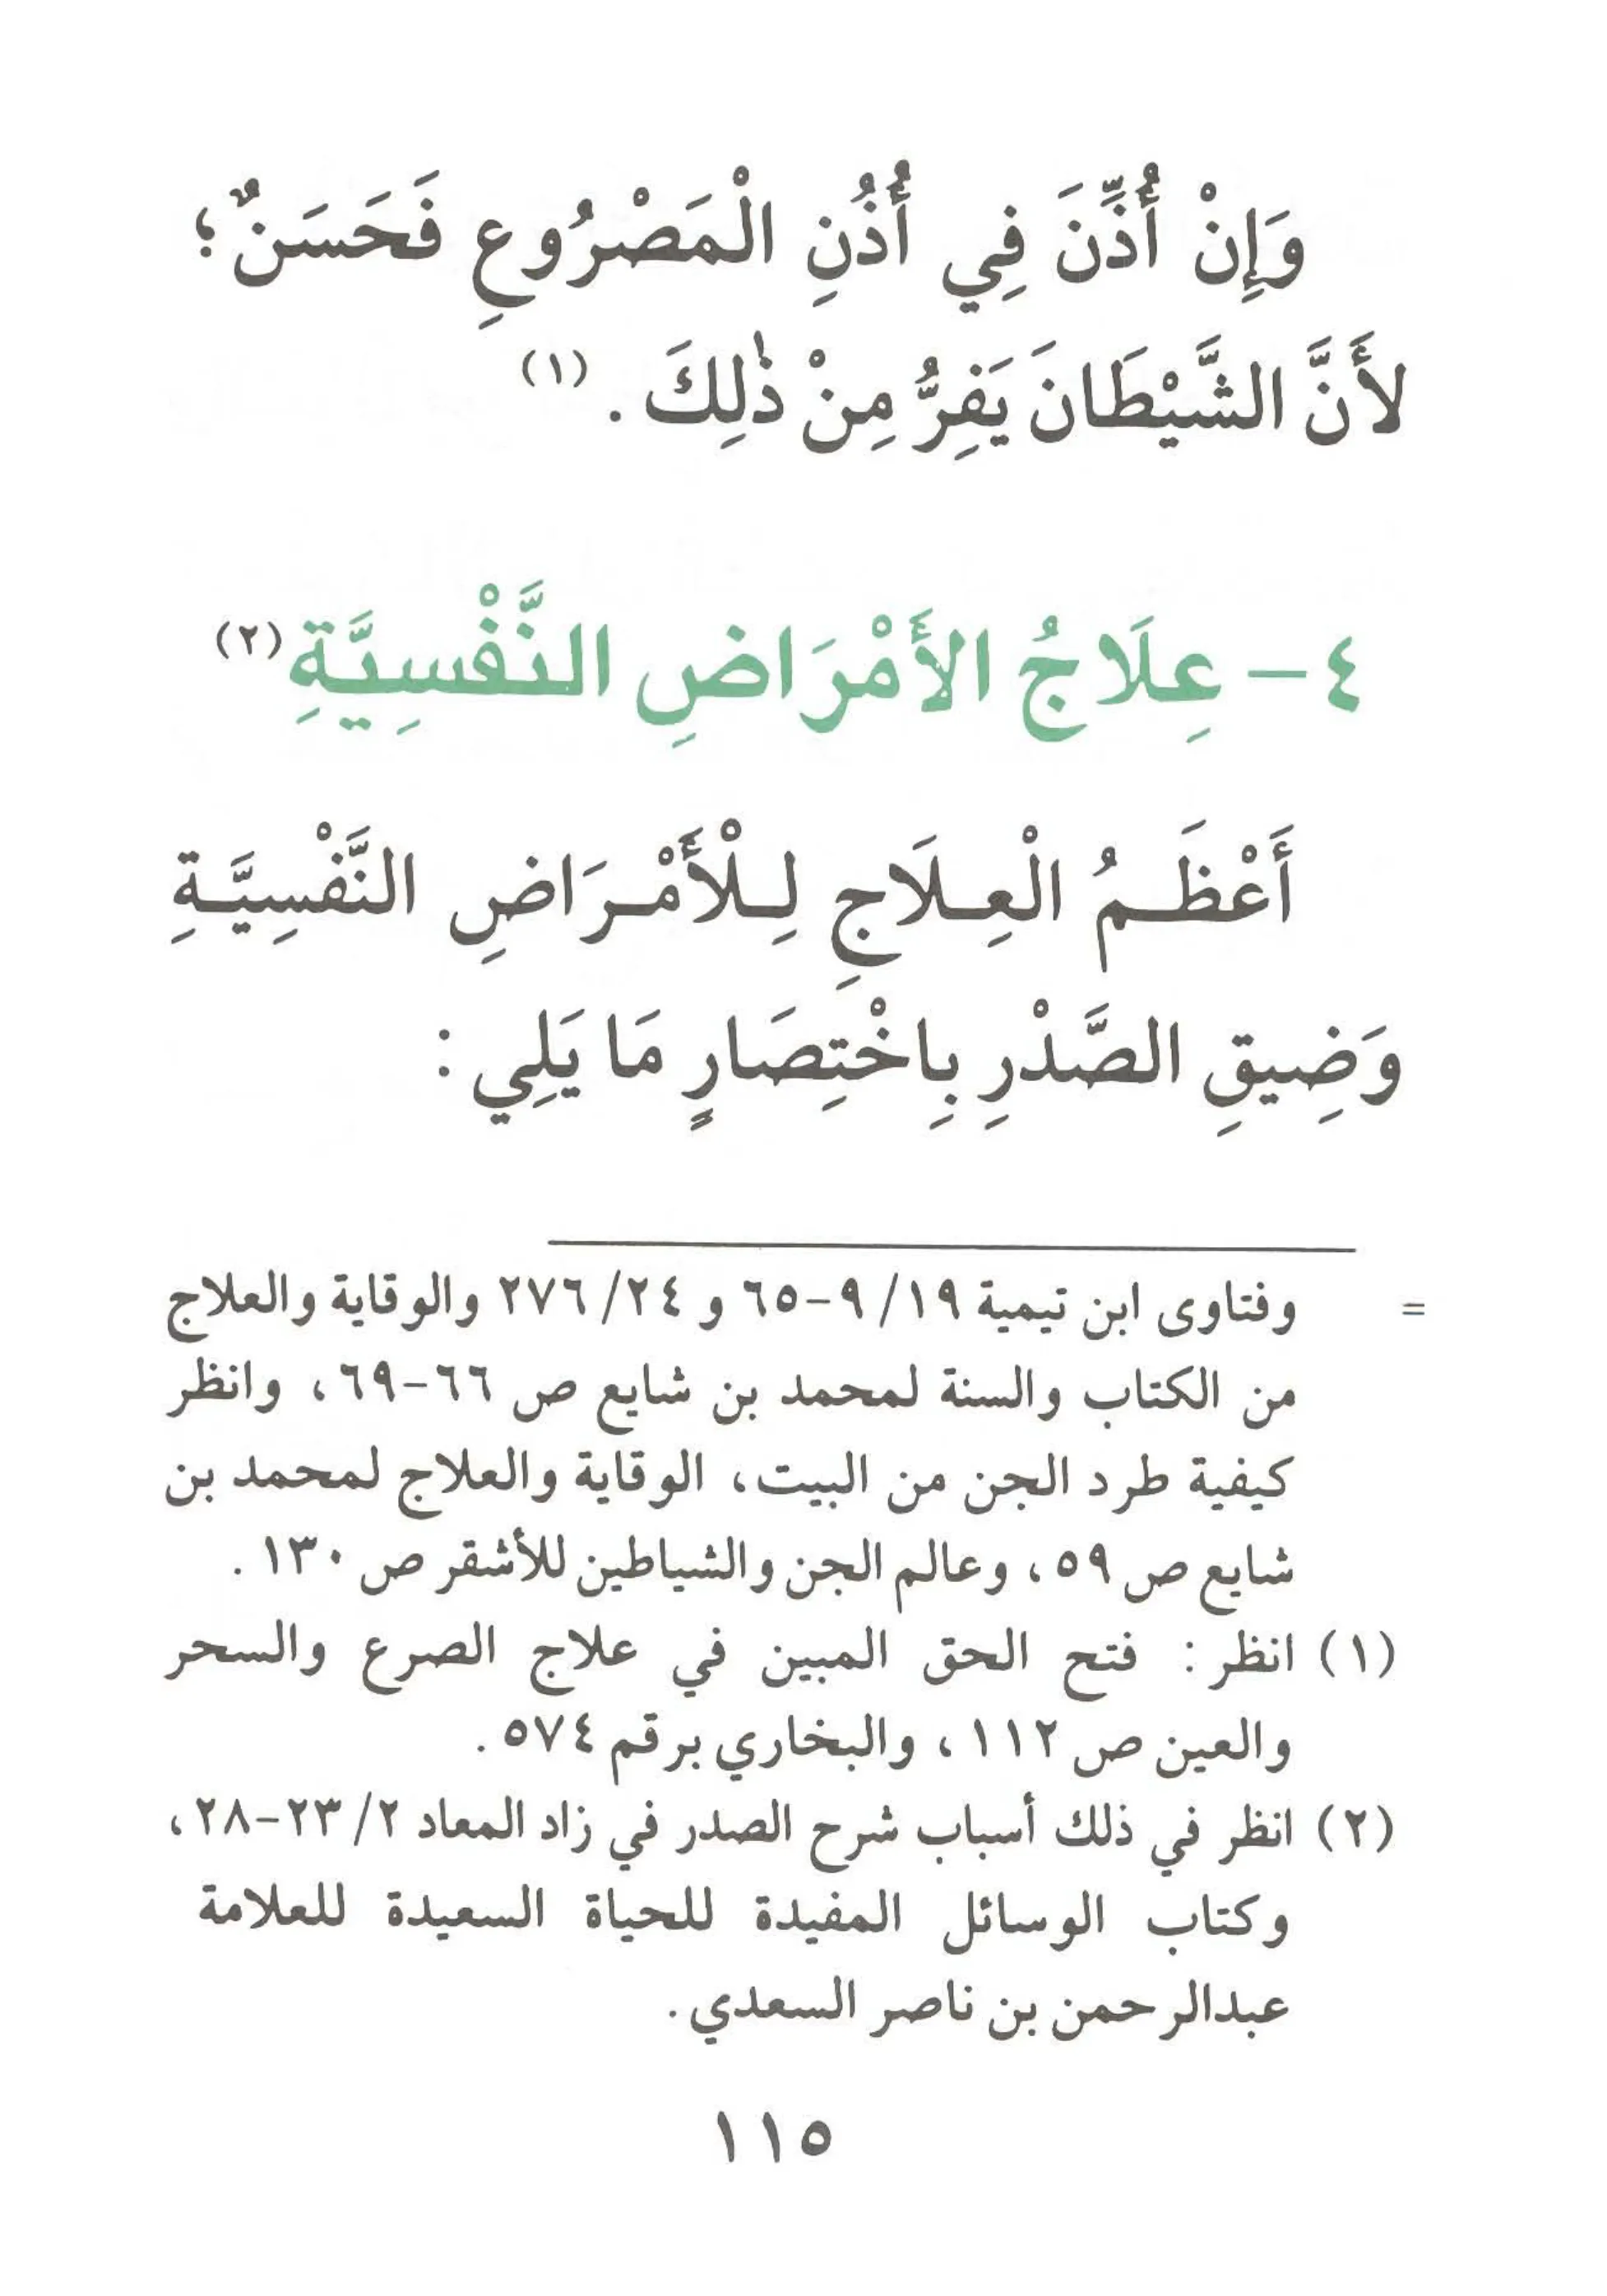 وَإِنْ أُذِّنَ فِي أُذُنِ الْمَصْرُوعِ فَحَسَنٌ؛
لأَنَّ الشَّيْطَانَ يَفِرُّ مِنْ ذٰلِكَ . (١)
٤- عِلَاجُ الأَمْرَاضِ النَّفْسِيَّةِ (٢)
أَعْظَمُ الْعِلَاجِ لِلْأَمْرَاضِ النَّفْسِيَّةِ
وَضِيقِ الصَّدْرِ بِاخْتِصَارٍ مَا يَلِي :
= وفتاوى ابن تيمية ١٩/ ٩-٦٥ و ٢٤/ ٢٧٦ والوقاية والعلاج
من الكتاب والسنة لمحمد بن شايع ص ٦٦-٦٩، وانظر
كيفية طرد الجن من البيت، الوقاية والعلاج لمحمد بن
شايع ص ٥٩، وعالم الجن والشياطين للأشقر ص ١٣٠ .
(١) انظر : فتح الحق المبين في علاج الصرع والسحر
والعين ص ١١٢، والبخاري برقم ٥٧٤ .
(٢) انظر في ذلك أسباب شرح الصدر في زاد المعاد ٢/ ٢٣-٢٨،
وكتاب الوسائل المفيدة للحياة السعيدة للعلامة
عبدالرحمن بن ناصر السعدي .
١١٥